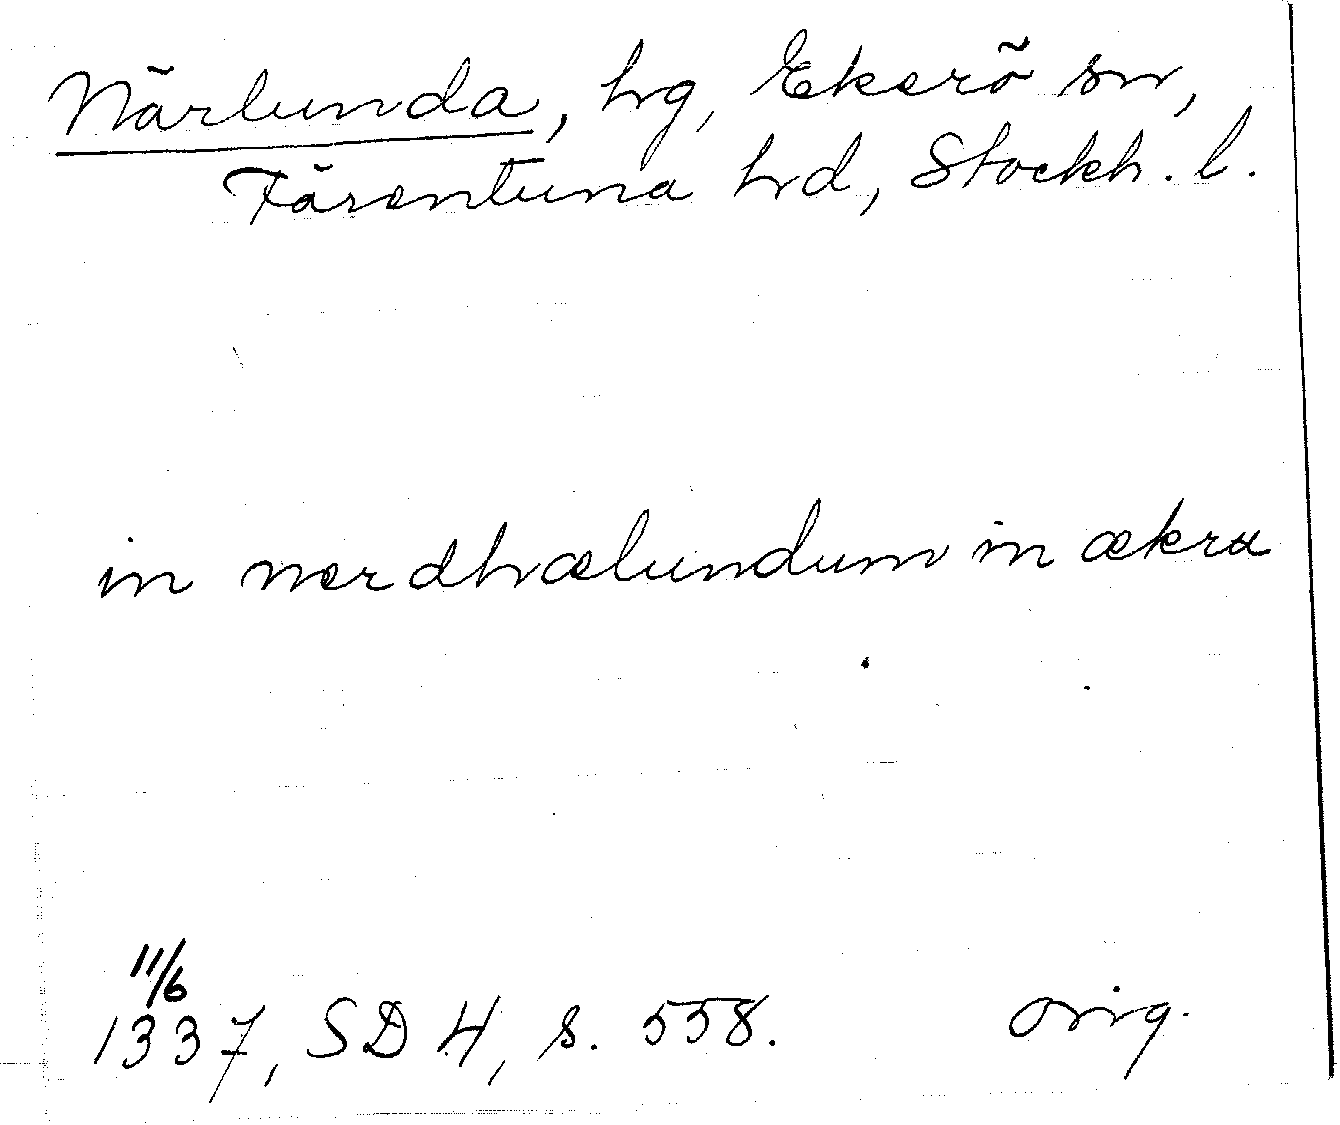 Närlunda, hg, Ekerö sn,
Färentuna hd, Stockh. l.
in nerdhælundum in ækru
11/6
1337, SD 4, s. 558. orig.